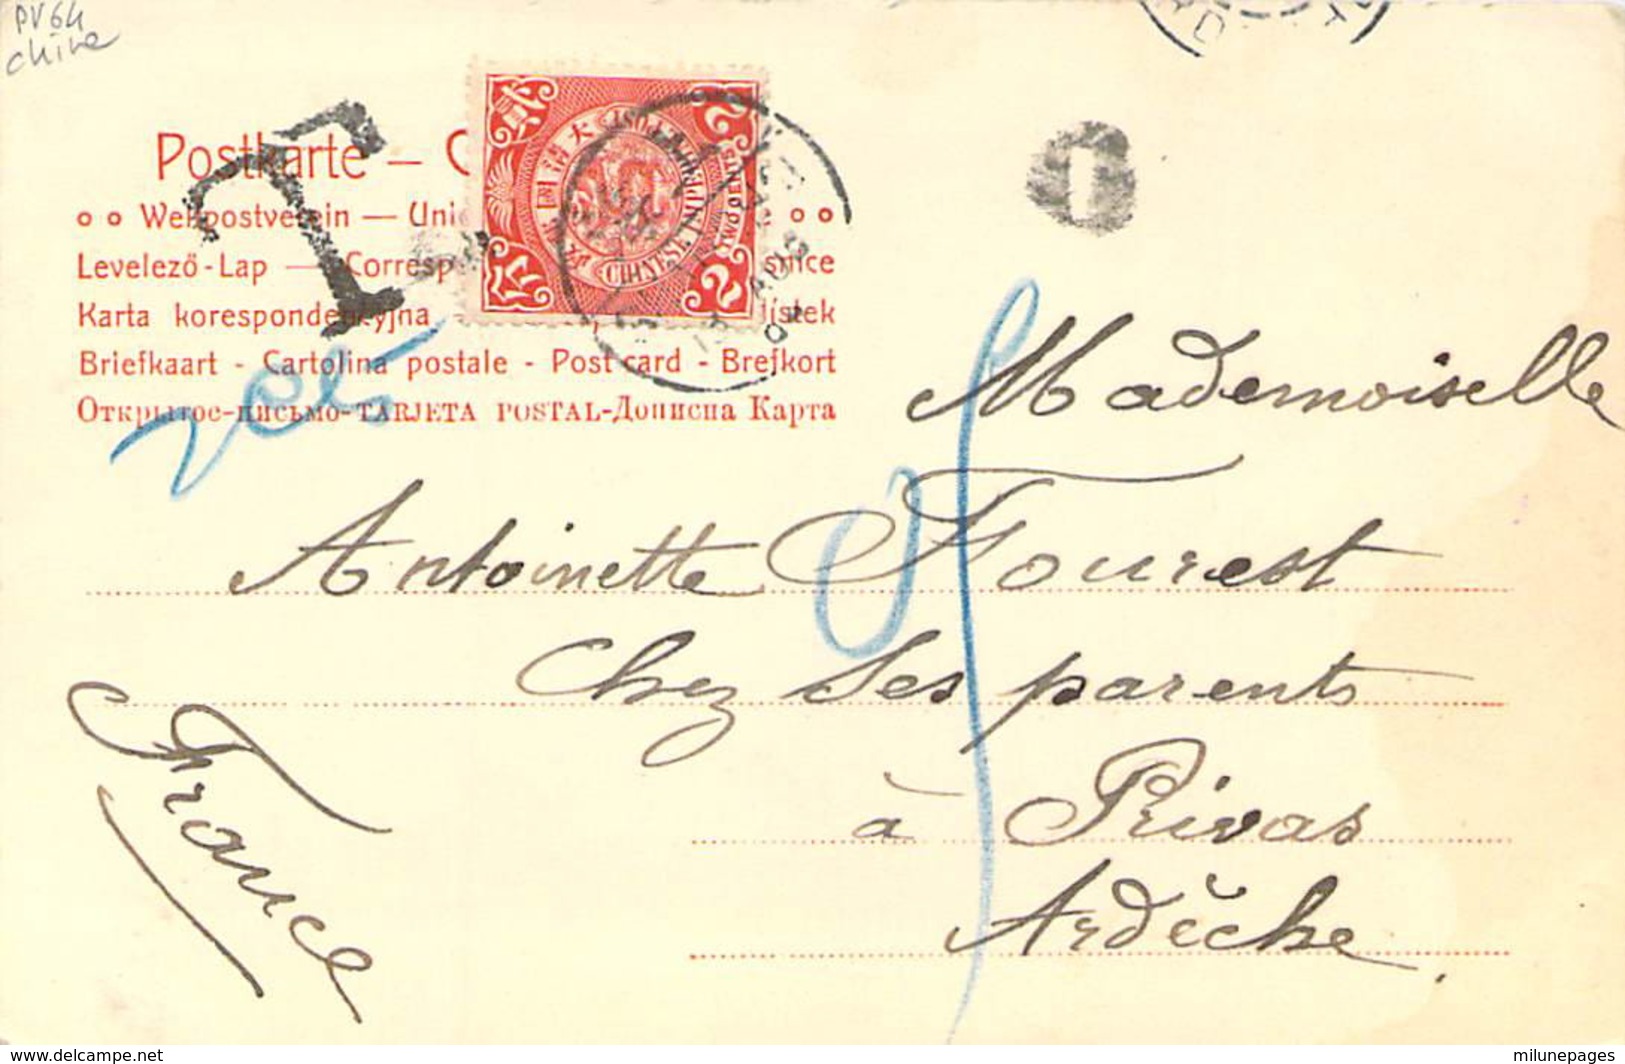 PV64
chine
Postkarte –
Weltpostverein — Uni
Levelező-Lap — Corresp
Karta korespondencyjna lístek
Briefkaart - Cartolina postale - Post card - Brefkort
Открытое-письмо-TARJETA POSTAL-Дописна Карта
大清
國
2 2
TWO CENTS
CHINESE IMPERIAL POST
T
1
AUG
Mademoiselle
Antoinette Fourest
chez ses parents
à Privas
Ardèche.
France
www.delcampe.com
milunepages